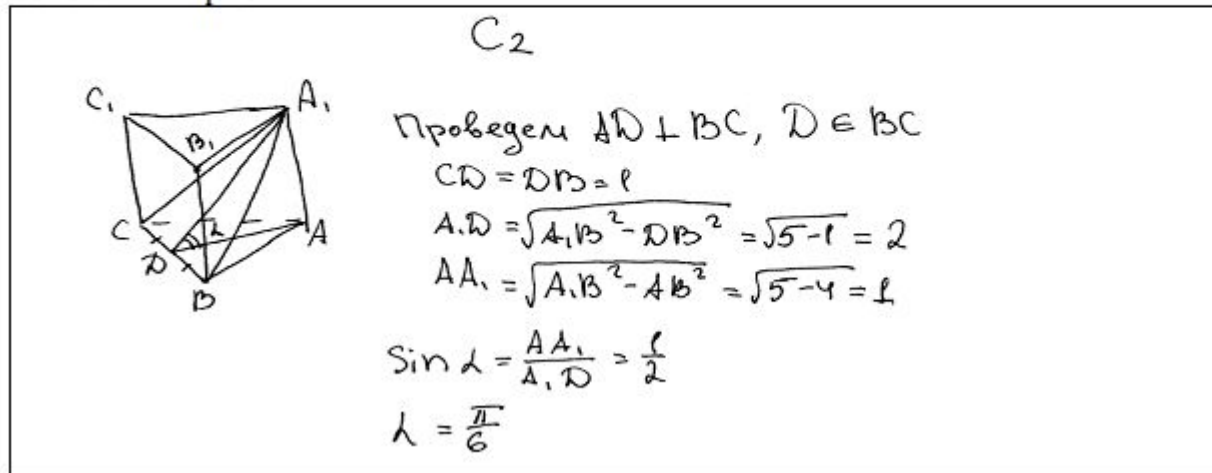 C₂
C₁
A₁
B₁
C
α
A
D
B
Проведем AD ⊥ BC, D ∈ BC
CD = DB = 1
A₁D = √(A₁B² - DB²) = √(5-1) = 2
AA₁ = √(A₁B² - AB²) = √(5-4) = 1
Sin α = AA₁/A₁D = 1/2
α = π/6